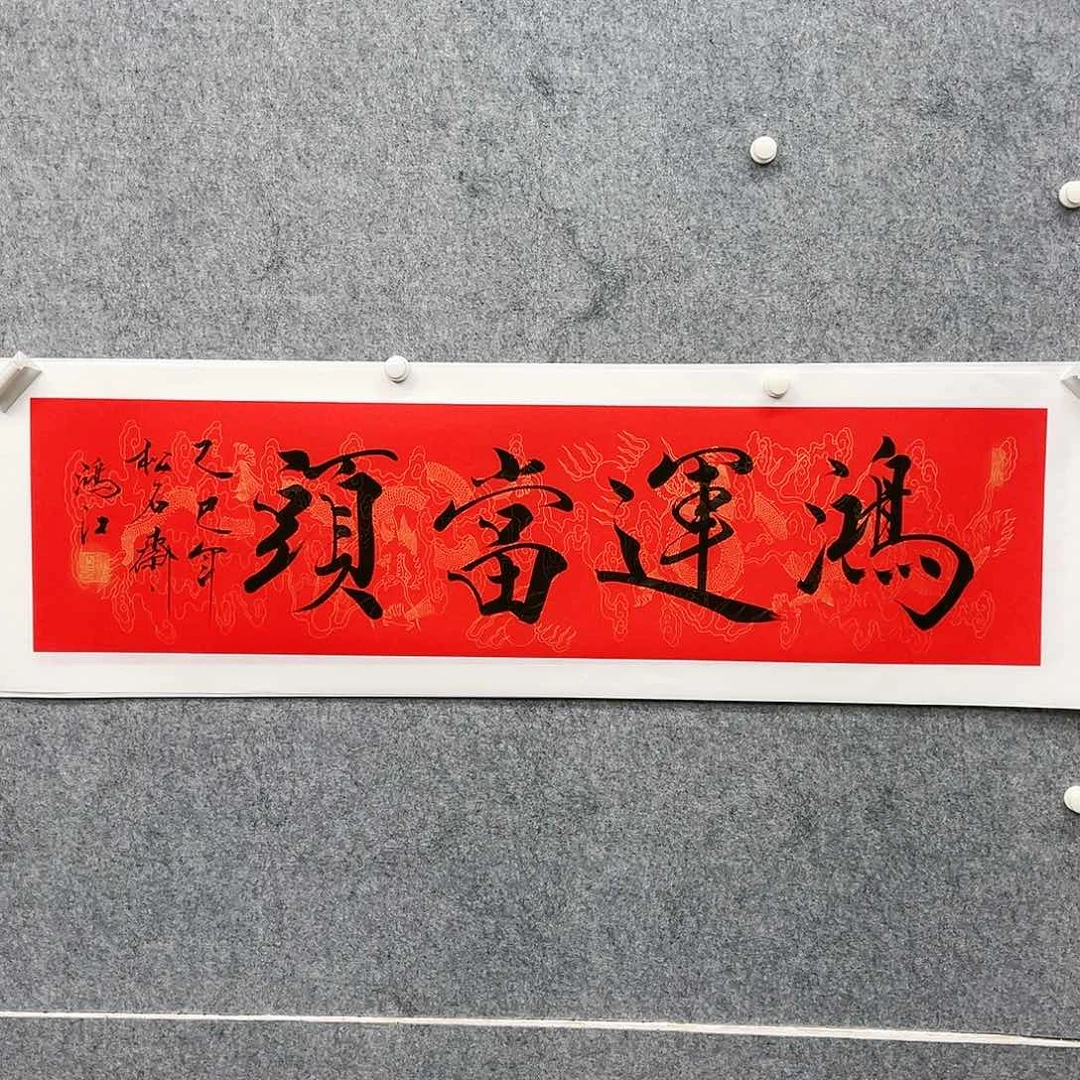 鴻運當頭
乙巳年
松石齋
鴻江